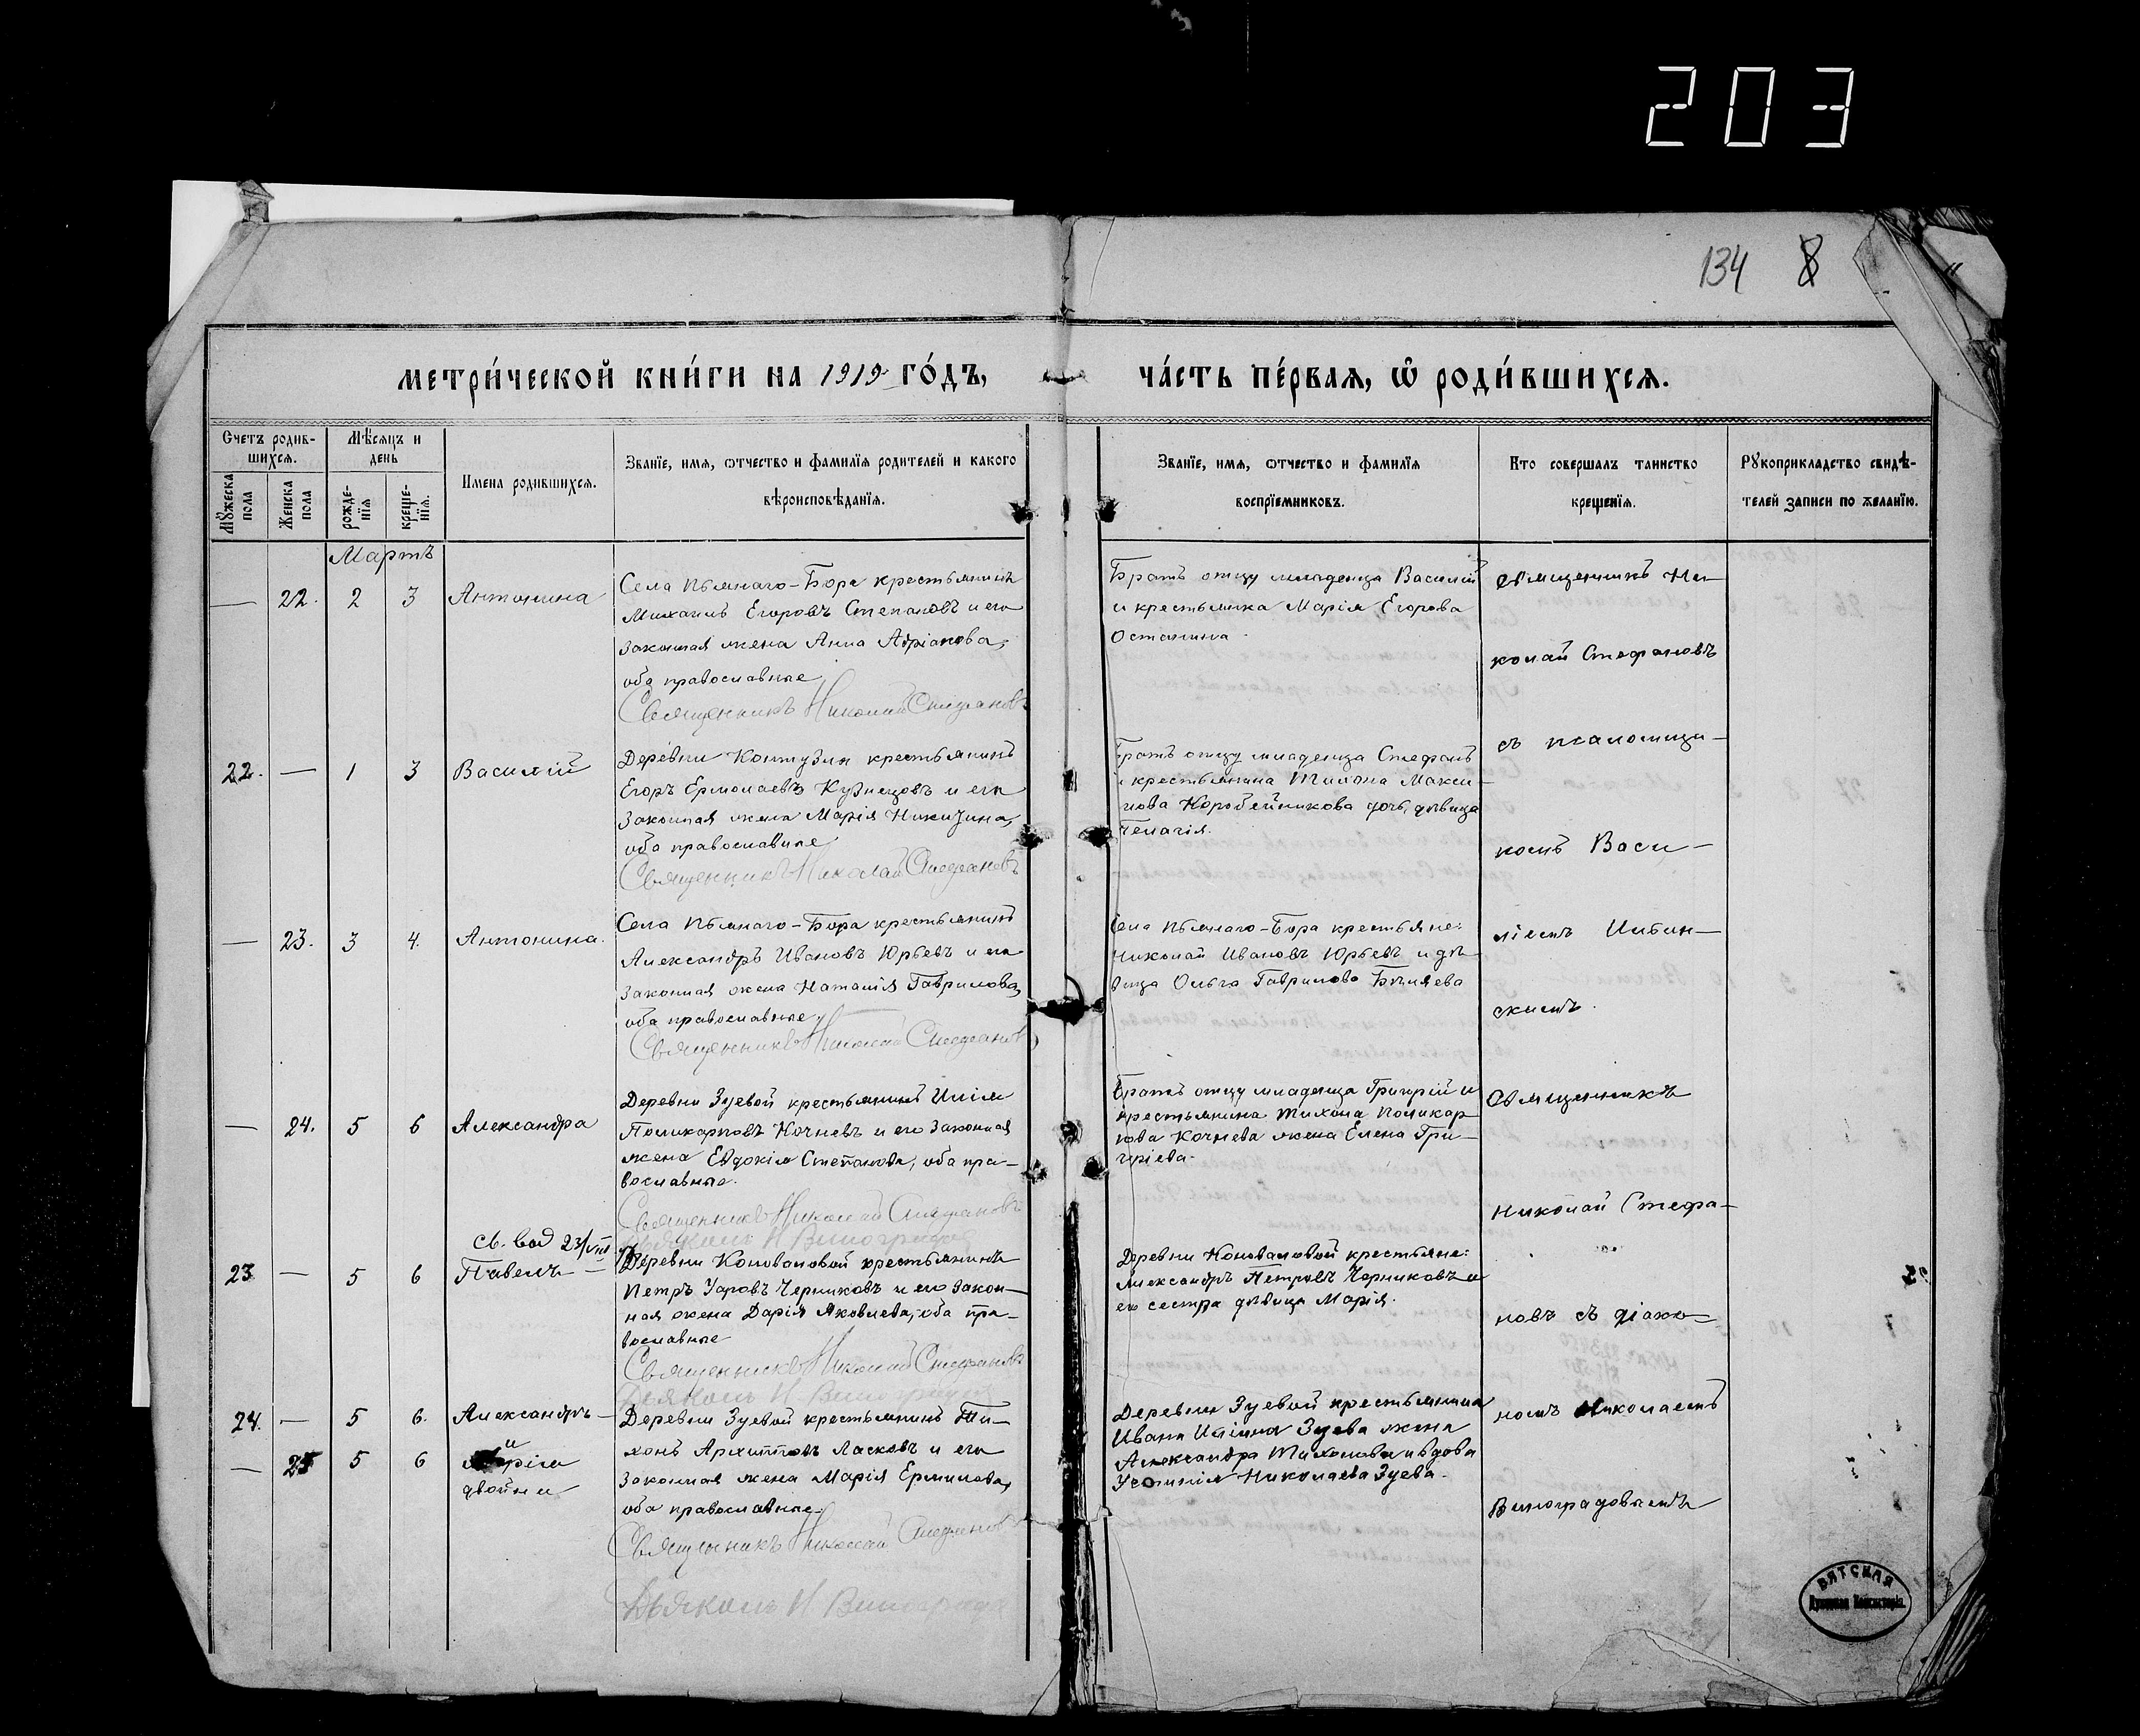 203
134 8
метри́ческой кни́ги на 1919 го́дъ,
ча́сть пе́рвая, ѡ҆ роди́вшихсѧ.
Счетъ родив-
шихсѧ.
Мѣсѧцъ и
день
Мꙋжеска
пола
Женска
пола
рожде-
нїѧ
креще-
нїѧ.
Имена родившихсѧ.
Званїе, имѧ, ѿчество и фамилїѧ родителей и какого
вѣроисповѣданїѧ.
Званїе, имѧ, ѿчество и фамилїѧ
воспрїемниковъ.
Кто совершалъ таинство
крещенїѧ.
Рꙋкоприкладство свидѣ-
телей записи по желанїю.
Мартъ
— 22. 2 3 Антонина
Села Пьянаго-Бора крестьянинъ
Михаилъ Егоровъ Степановъ и его
законная жена Анна Адріанова,
оба православные
Священникъ Николай Стефановъ
Братъ отцу младенца Василій
и крестьянка Марія Егорова
Останина.
22. — 1 3 Василій
Деревни Контузли крестьянинъ
Егоръ Ермолаевъ Кузнецовъ и его
законная жена Марія Никитина,
оба православные
Священникъ Николай Стефановъ
Братъ отцу младенца Стефанъ
и крестьянина Максима
Коробейникова дочь, дѣвица
Пелагія.
— 23. 3 4. Антонина.
Села Пьянаго-Бора крестьянинъ
Александръ Ивановъ Юрьевъ и его
законная жена Наталія Гаврилова,
оба православные
Священникъ Николай Стефановъ
Села Пьянаго-Бора крестьяне:
Николай Ивановъ Юрьевъ и дѣ-
вица Ольга Гаврилова Бѣляева
Священникъ Ни-
колай Стефановъ
съ псаломщи-
комъ Васи-
ліемъ
скимъ.
— 24. 5 6 Александра
Деревни Зуевой крестьянинъ Илія
Поликарповъ Кочневъ и его законная
жена Евдокія Степанова, оба пра-
вославные.
Священникъ Николай Стефановъ
Дьяконъ Н. Виноградов
Братъ отцу младенца Григорій и
крестьянина Тихона Поликар-
пова Кочнева жена Елена Гри-
горіева.
св. выд 23/VIII
23 — 5 6 Павелъ
Деревни Коноваловой крестьянинъ
Петръ Уаровъ Черниковъ и его закон-
ная жена Дарія Яковлева, оба пра-
вославные
Священникъ Николай Стефановъ
Дьяконъ Н. Виноградов
Деревни Коноваловой крестьяне:
Александръ Петровъ Черниковъ и
его сестра дѣвица Марія.
24. — 5 6. Александръ
и
— 25 5 6 Марія
двойни
Деревни Зуевой крестьянинъ Ти-
хонъ Архипповъ Ласковъ и его
законная жена Марія Ермилова,
оба православные.
Священникъ Николай Стефановъ
Дьяконъ Н. Виноградов
Деревни Зуевой крестьянина
Ивана Иліина Зуева жена
Александра Тихонова и вдова
Устинія Николаева Зуева.
Священникъ
Николай Стефа-
новъ съ діако-
номъ Николаемъ
Виноградовымъ
ВЯТСКАЯ
Духовная Консисторія.